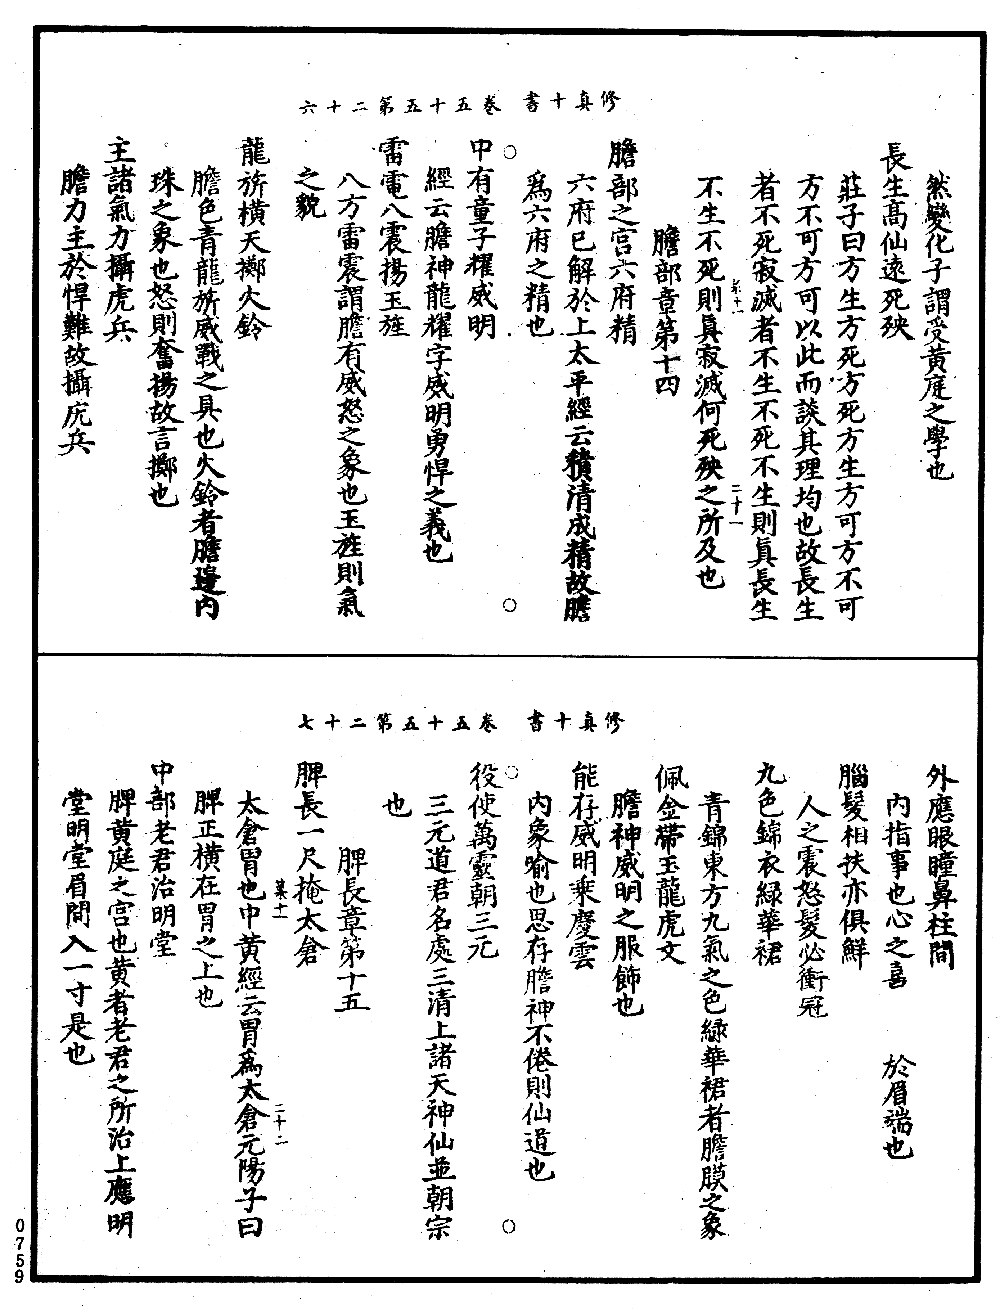 修真十書　卷五十五第二十六
然變化子謂受黃庭之學也
長生高仙遠死殃
莊子曰方生方死方死方生方可方不可
方不可方可以此而談其理均也故長生
者不死寂滅者不生不死不生則真長生
不生不死則真寂滅何死殃之所及也
膽部章第十四
膽部之宮六府精
六府已解於上太平經云積清成精故膽
為六府之精也
中有童子耀威明
經云膽神龍耀字威明勇悍之義也
雷電八震揚玉旌
八方雷震謂膽有威怒之象也玉旌則氣
之貌
龍旂橫天擲火鈴
膽色青龍旂威戰之具也火鈴者膽邊內
珠之象也怒則奮揚故言擲也
主諸氣力攝虎兵
膽力主於悍難故攝虎兵
二十一
修真十書　卷五十五第二十七
外應眼瞳鼻柱間
內指事也心之喜　於眉端也
腦髮相扶亦俱鮮
人之震怒髮必衝冠
九色錦衣綠華裙
青錦東方九氣之色綠華裙者膽膜之象
佩金帶玉龍虎文
膽神威明之服飾也
能存威明乘慶雲
內象喻也思存膽神不倦則仙道也
役使萬靈朝三元
三元道君名處三清上諸天神仙並朝宗
也
脾長章第十五
脾長一尺掩太倉
太倉胃也中黃經云胃為太倉元陽子曰
脾正橫在胃之上也
中部老君治明堂
脾黃庭之宮也黃者老君之所治上應明
堂明堂眉間入一寸是也
二十二
0759